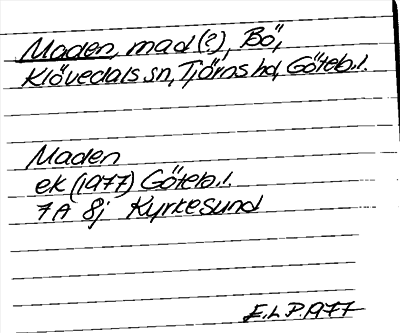 Maden, mad (?), Bö,
Klövedals sn, Tjörns hd, Göteb. l.
Maden
ek (1977) Göteb. l.
7A 8j Kyrkesund
E.L.P. 1977